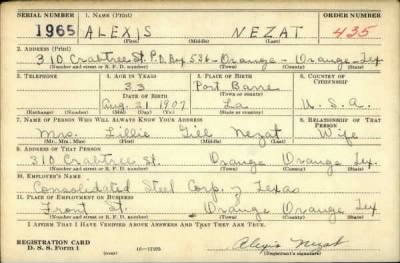 SERIAL NUMBER 1. NAME (Print) ORDER NUMBER
1965 ALEXIS NEZAT 435
(First) (Middle) (Last)
2. ADDRESS (Print)
310 Crabtree St. P.O. Box 536 - Orange - Orange - Tex
(Number and street or R. F. D. number) (Town) (County) (State)
3. TELEPHONE 4. AGE IN YEARS 5. PLACE OF BIRTH 6. COUNTRY OF CITIZENSHIP
33 Port Barre
DATE OF BIRTH (Town or county)
Aug. 21 1907 La. U.S.A.
(Exchange) (Number) (Mo.) (Day) (Yr.) (State or country)
7. NAME OF PERSON WHO WILL ALWAYS KNOW YOUR ADDRESS 8. RELATIONSHIP OF THAT PERSON
Mrs. Lillie Gill Nezat Wife
(Mr., Mrs., Miss) (First) (Middle) (Last)
9. ADDRESS OF THAT PERSON
310 Crabtree St. Orange Orange Tex.
(Number and street or R. F. D. number) (Town) (County) (State)
10. EMPLOYER'S NAME
Consolidated Steel Corp. of Texas
11. PLACE OF EMPLOYMENT OR BUSINESS
Front St. Orange Orange Tex
(Number and street or R. F. D. number) (Town) (County) (State)
I AFFIRM THAT I HAVE VERIFIED ABOVE ANSWERS AND THAT THEY ARE TRUE.
REGISTRATION CARD
D. S. S. Form 1 (over) Alexis Nezat
(Registrant's signature)